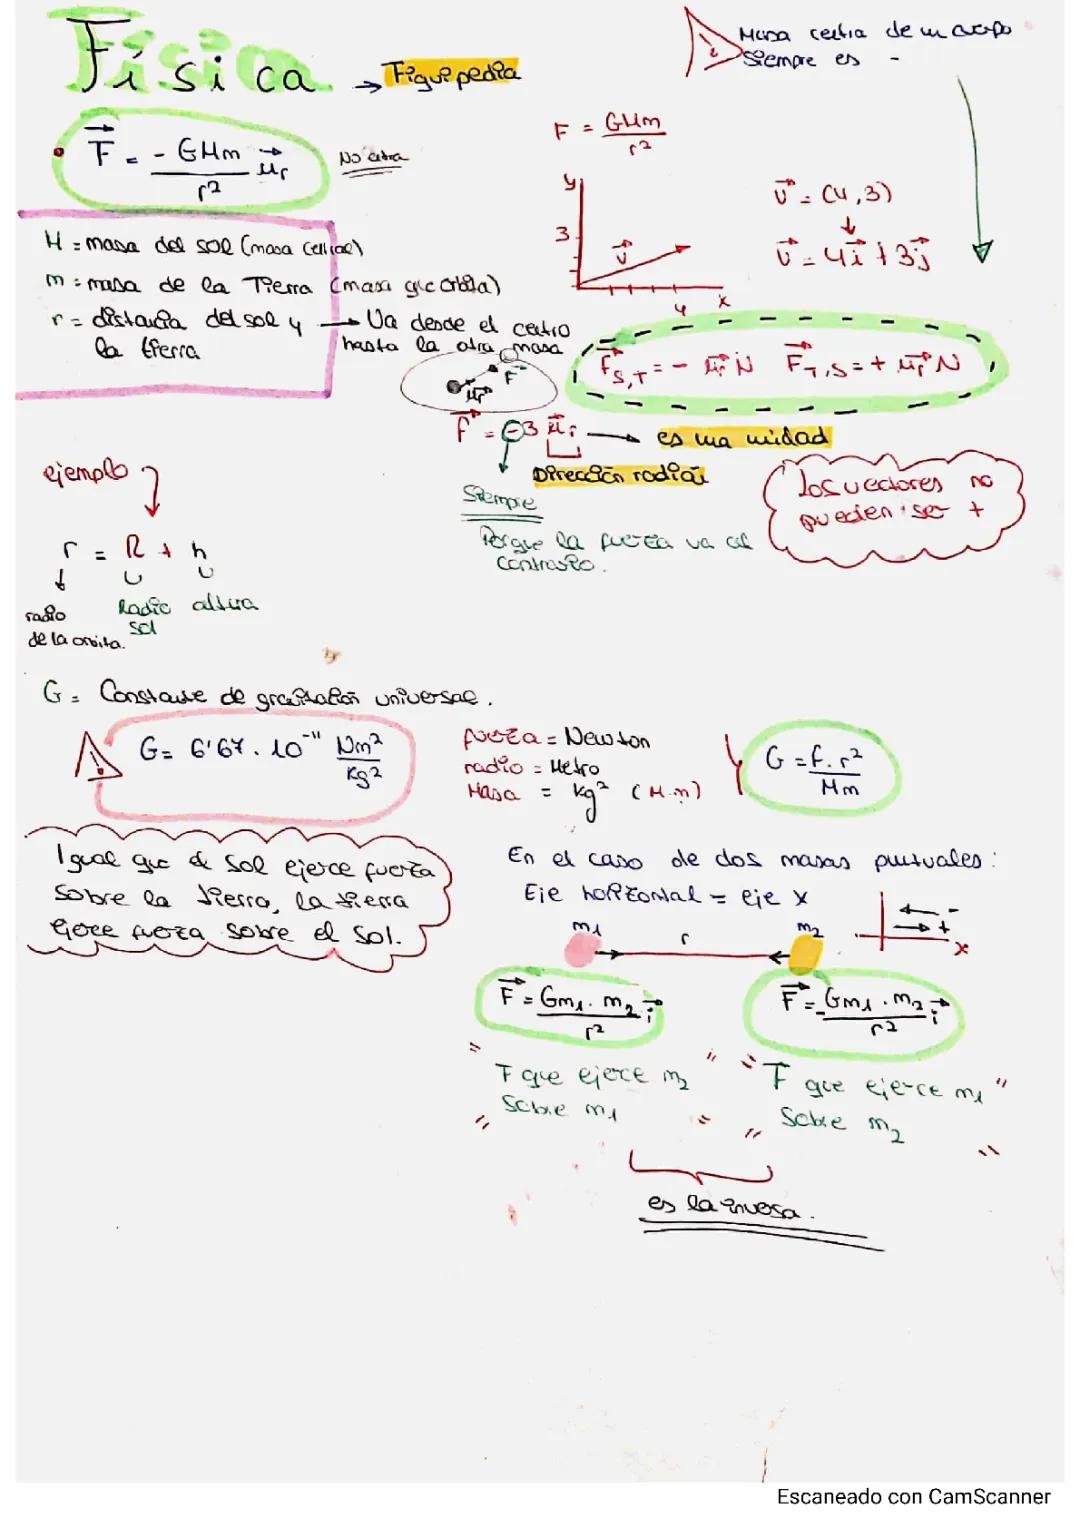 Física
→ Fiquipedia
Masa central de un cuerpo
siempre es -
F⃗ = - GMm / r² u⃗r
No entra
F = GMm / r²
y
3
v⃗
4
x
v⃗ = (4,3)
↓
v⃗ = 4i⃗ + 3j⃗
M = masa del sol (masa central)
m = masa de la Tierra (masa que orbita)
r = distancia del sol y → Va desde el centro
la tierra
hasta la otra masa
F⃗
u⃗r
F⃗S,T = - u⃗r N F⃗T,S = + u⃗r N
F⃗ = -3 u⃗r → es una unidad
Dirección radial
Siempre
Porque la fuerza va al
contrario.
Los vectores no
pueden ser +
ejemplo
r = R + h
radio
de la orbita.
Radio
sol
altura
G = Constante de gravitación universal.
G = 6'67 · 10⁻¹¹ Nm² / Kg²
fuerza = Newton
radio = Metro
Masa = kg² (M·m)
G = f · r² / Mm
Igual que el sol ejerce fuerza
sobre la tierra, la tierra
ejerce fuerza sobre el sol.
En el caso de dos masas puntuales:
Eje horizontal = eje x
m1
r
m2
-
+
x
F⃗ = Gm1 · m2 / r² i⃗
F⃗ = - Gm1 · m2 / r² i⃗
" F que ejerce m2 "
" sobre m1 "
" F que ejerce m1 "
" sobre m2 "
es la inversa.
Escaneado con CamScanner